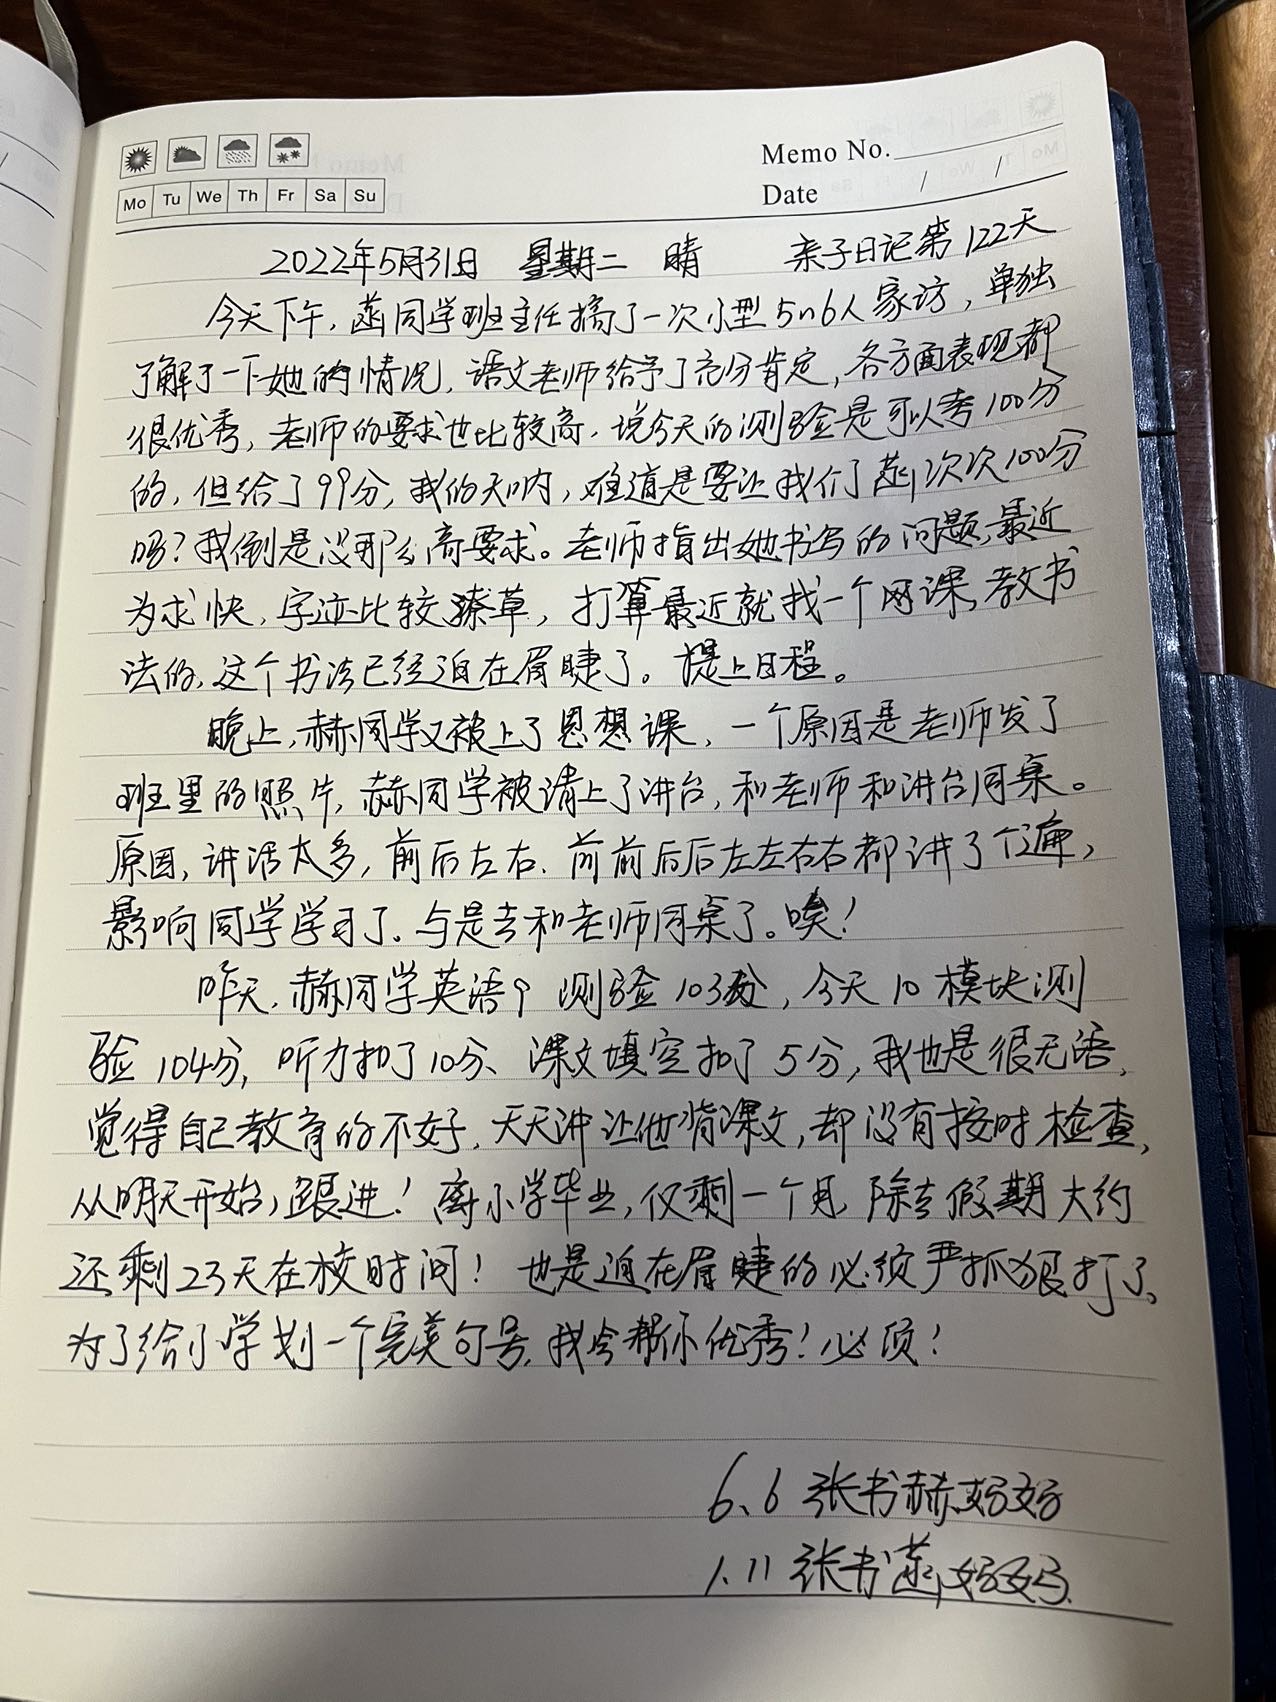 Memo No.
Date / /
Mo Tu We Th Fr Sa Su
2022年5月31日 星期二 晴 亲子日记第122天
今天下午,菡同学班主任搞了一次小型5n6人家访,单独
了解了一下她的情况,语文老师给予了充分肯定,各方面表现都
很优秀,老师的要求也比较高,说今天的测验是可以考100分
的,但给了99分,我的天呐,难道是要让我们菡次次100分
吗?我倒是没那么高要求。老师指出她书写的问题,最近
为求快,字迹比较潦草,打算最近就找一个网课,教书
法的,这个书法已经迫在眉睫了。提上日程。
晚上,赫同学又被上了思想课,一个原因是老师发了
班里的照片,赫同学被请上了讲台,和老师和讲台同桌。
原因,讲话太多,前后左右、前前后后左左右右都讲了个遍,
影响同学学习了。与是去和老师同桌了。唉!
昨天,赫同学英语9测验103分,今天10模块测
验104分,听力扣了10分、课文填空扣了5分,我也是很无语,
觉得自己教育的不好,天天讲让他背课文,却没有按时检查,
从明天开始,跟进!离小学毕业,仅剩一个月,除去假期大约
还剩23天在校时间!也是迫在眉睫的必须严抓狠打了、
为了给小学划一个完美句号,我会帮你优秀!必须!
6.6 张书赫妈妈
1.11 张书菡妈妈